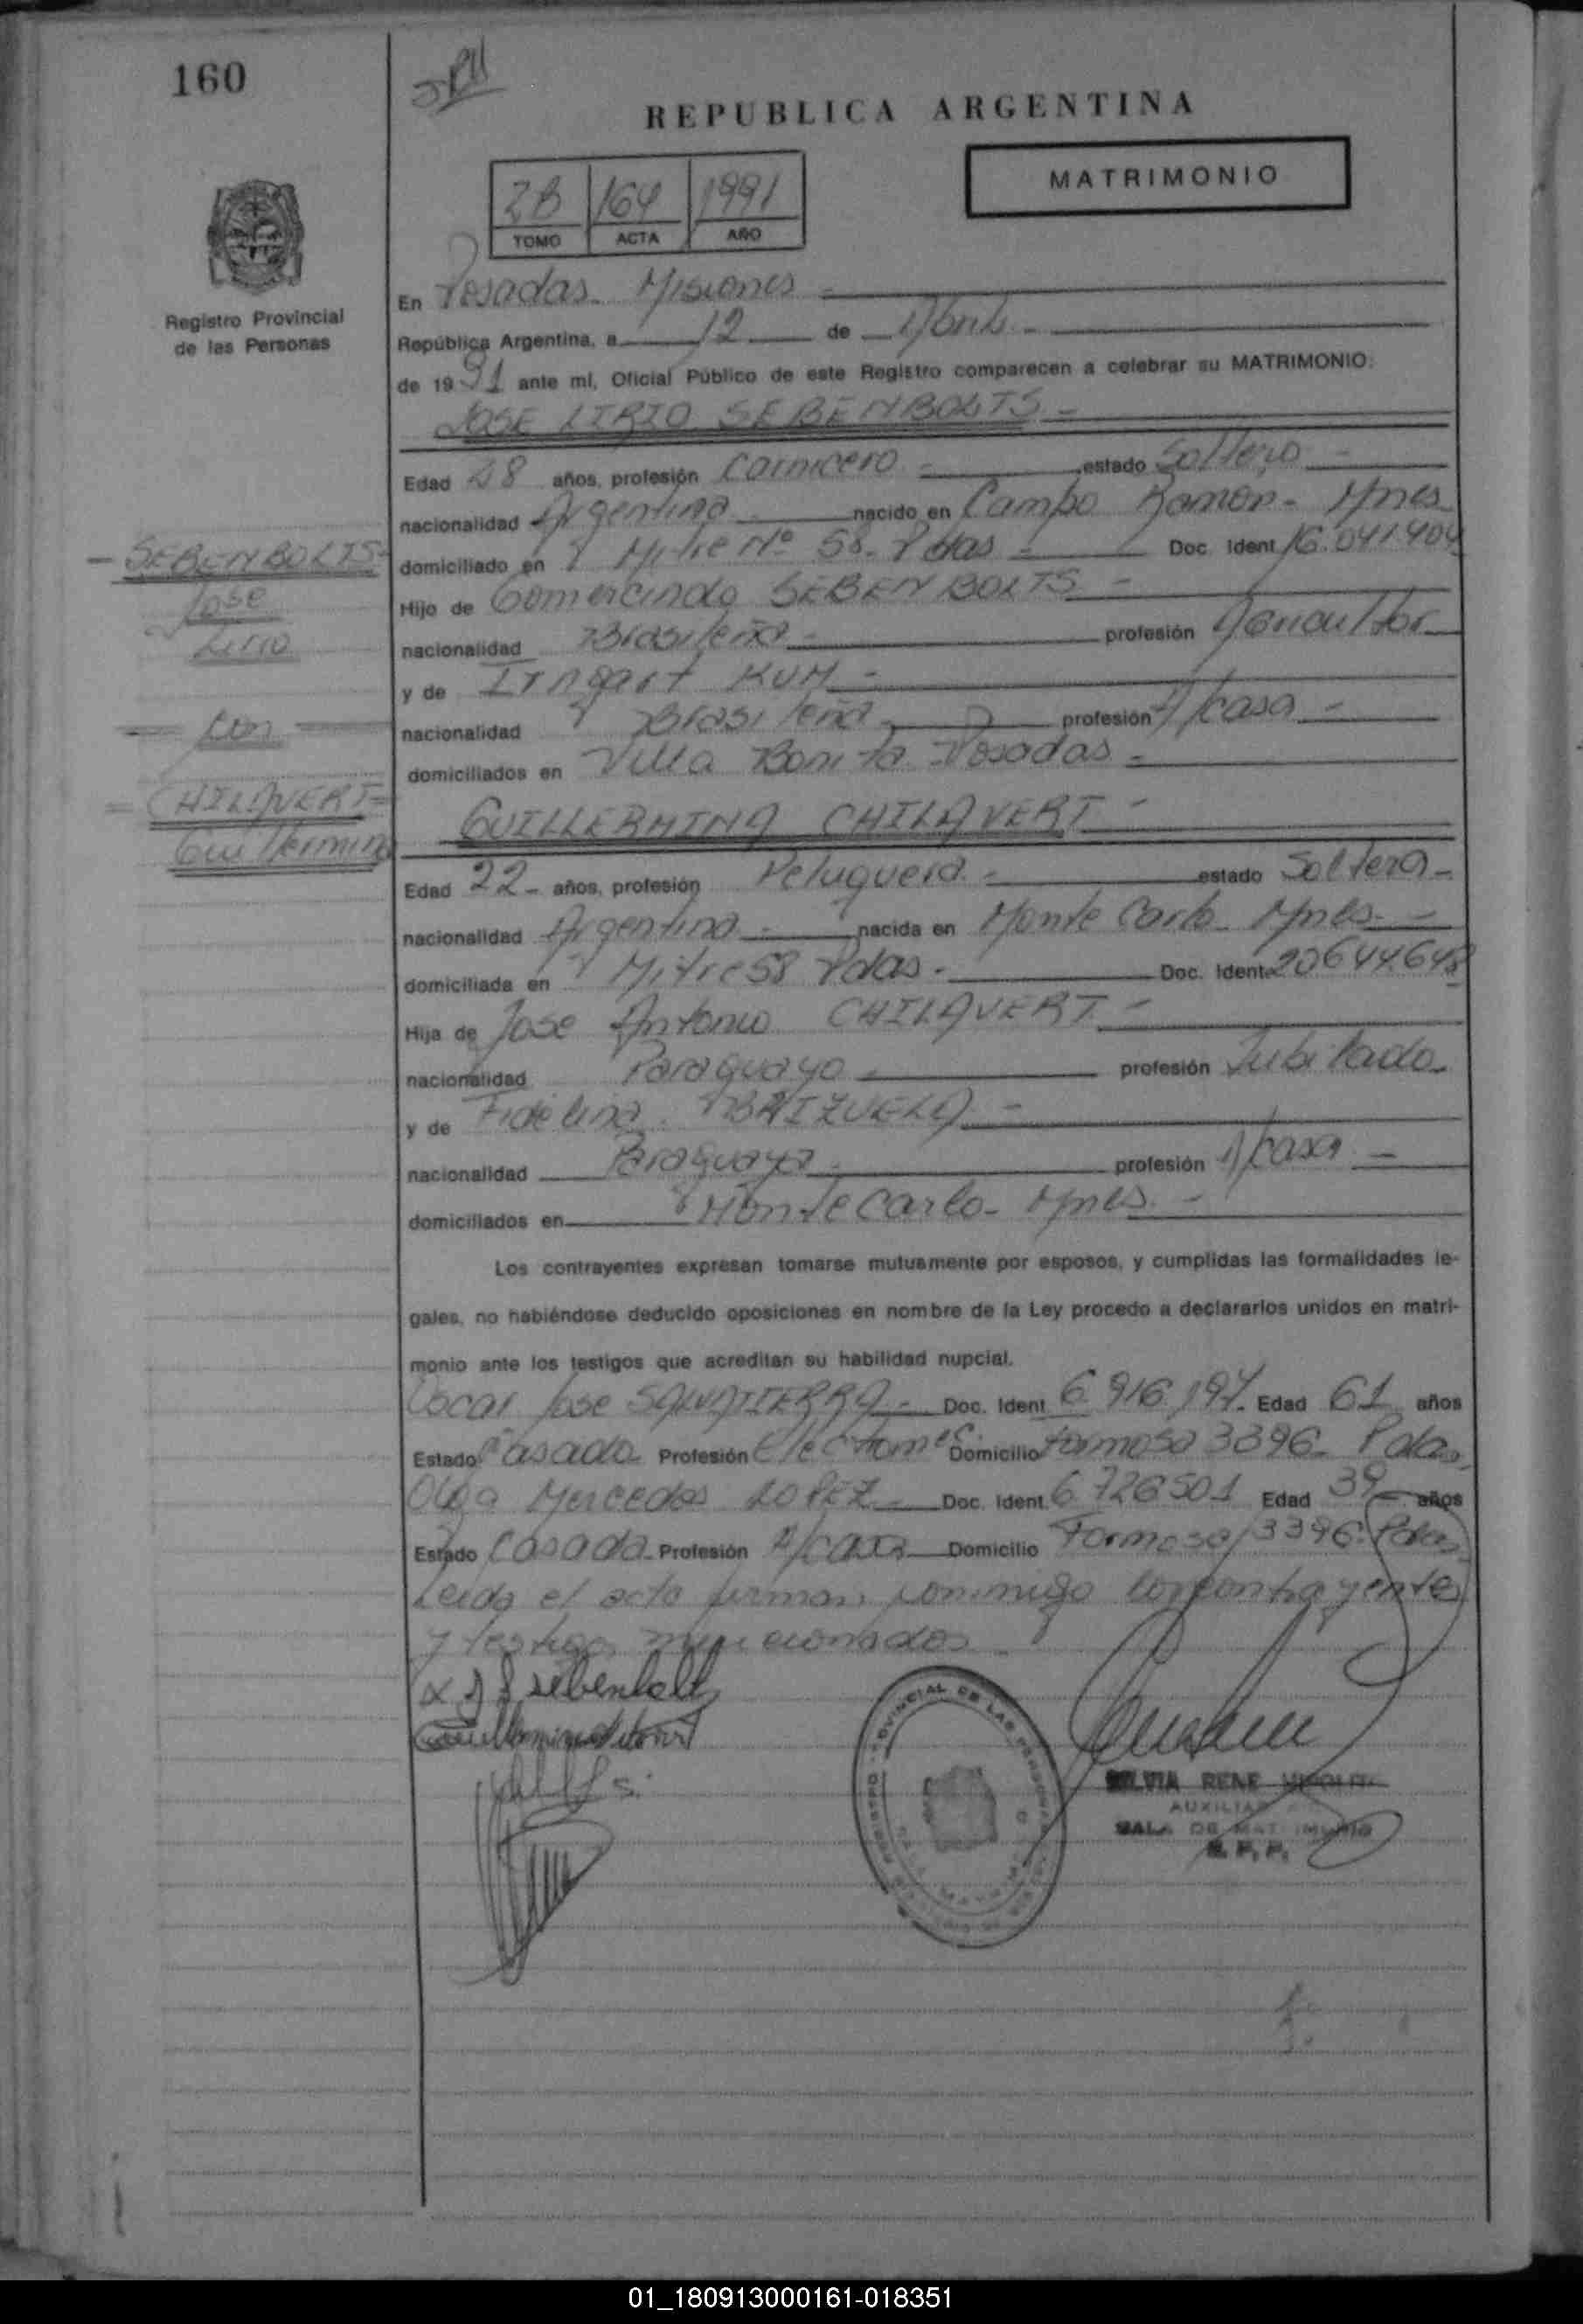 160
REPUBLICA ARGENTINA
MATRIMONIO
2B 164 1991
TOMO ACTA AÑO
Registro Provincial
de las Personas
En Posadas Misiones
República Argentina, a 12 de Abril
de 1991 ante mí, Oficial Público de este Registro comparecen a celebrar su MATRIMONIO:
JOSE LIRIO SEBENBOLTS
Edad 28 años, profesión Carnicero estado Soltero
nacionalidad Argentina nacido en Campo Ramon - Mnes
domiciliado en Mitre Nº 58 - Pdas Doc. Ident. 16.041.404
Hijo de Gomercindo SEBENBOLTS
nacionalidad Brasileña profesión Agricultor
y de Irngart KUM
nacionalidad Brasileña profesión A/casa
domiciliados en Villa Bonita Posadas
SEBENBOLTS
Jose
Lirio
con
CHILAVERT
Guillermina
GUILLERMINA CHILAVERT
Edad 22 años, profesión Peluquera estado Soltera
nacionalidad Argentina nacida en Monte Carlo Mnes
domiciliada en Mitre 58 Pdas Doc. Ident. 20644648
Hija de Jose Antonio CHILAVERT
nacionalidad Paraguayo profesión Jubilado
y de Fidelina BRIZUELA
nacionalidad Paraguaya profesión A/casa
domiciliados en Monte Carlo - Mnes
Los contrayentes expresan tomarse mutuamente por esposos, y cumplidas las formalidades le-
gales, no habiéndose deducido oposiciones en nombre de la Ley procedo a declararlos unidos en matri-
monio ante los testigos que acreditan su habilidad nupcial.
Oscar Jose SALVATIERRA Doc. Ident. 6 916 194 Edad 61 años
Estado Casado Profesión Electromec. Domicilio Formosa 3396 - Pdas
Olga Mercedes LOPEZ Doc. Ident. 6 726 501 Edad 39 años
Estado Casada Profesión A/casa Domicilio Formosa 3396 Pdas
Leida el acta firman conmigo los contrayentes
y testigos mencionados
SILVIA RENE
AUXILIAR
SALA DE MATRIMONIO
R. P. P.
01_180913000161-018351